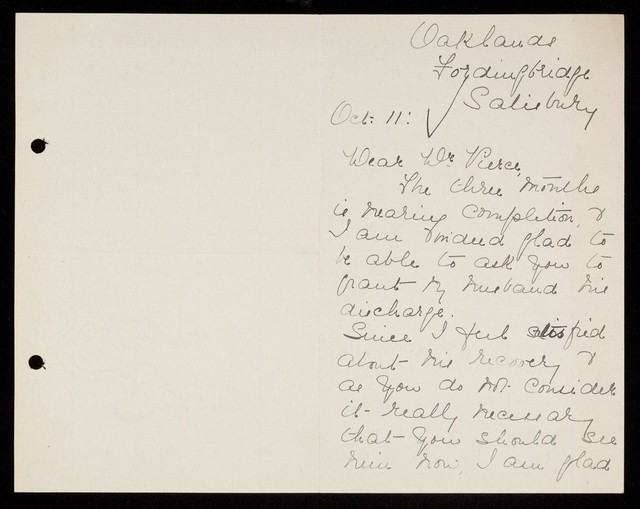 Oaklands
Fordingbridge
Salisbury
Oct: 11:
Dear Dr. Pierce,
The three months
is nearing completion, &
I am indeed glad to
be able to ask you to
grant my husband his
discharge.
Since I feel satisfied
about his recovery &
as you do not consider
it really necessary
that you should see
him now, I am glad